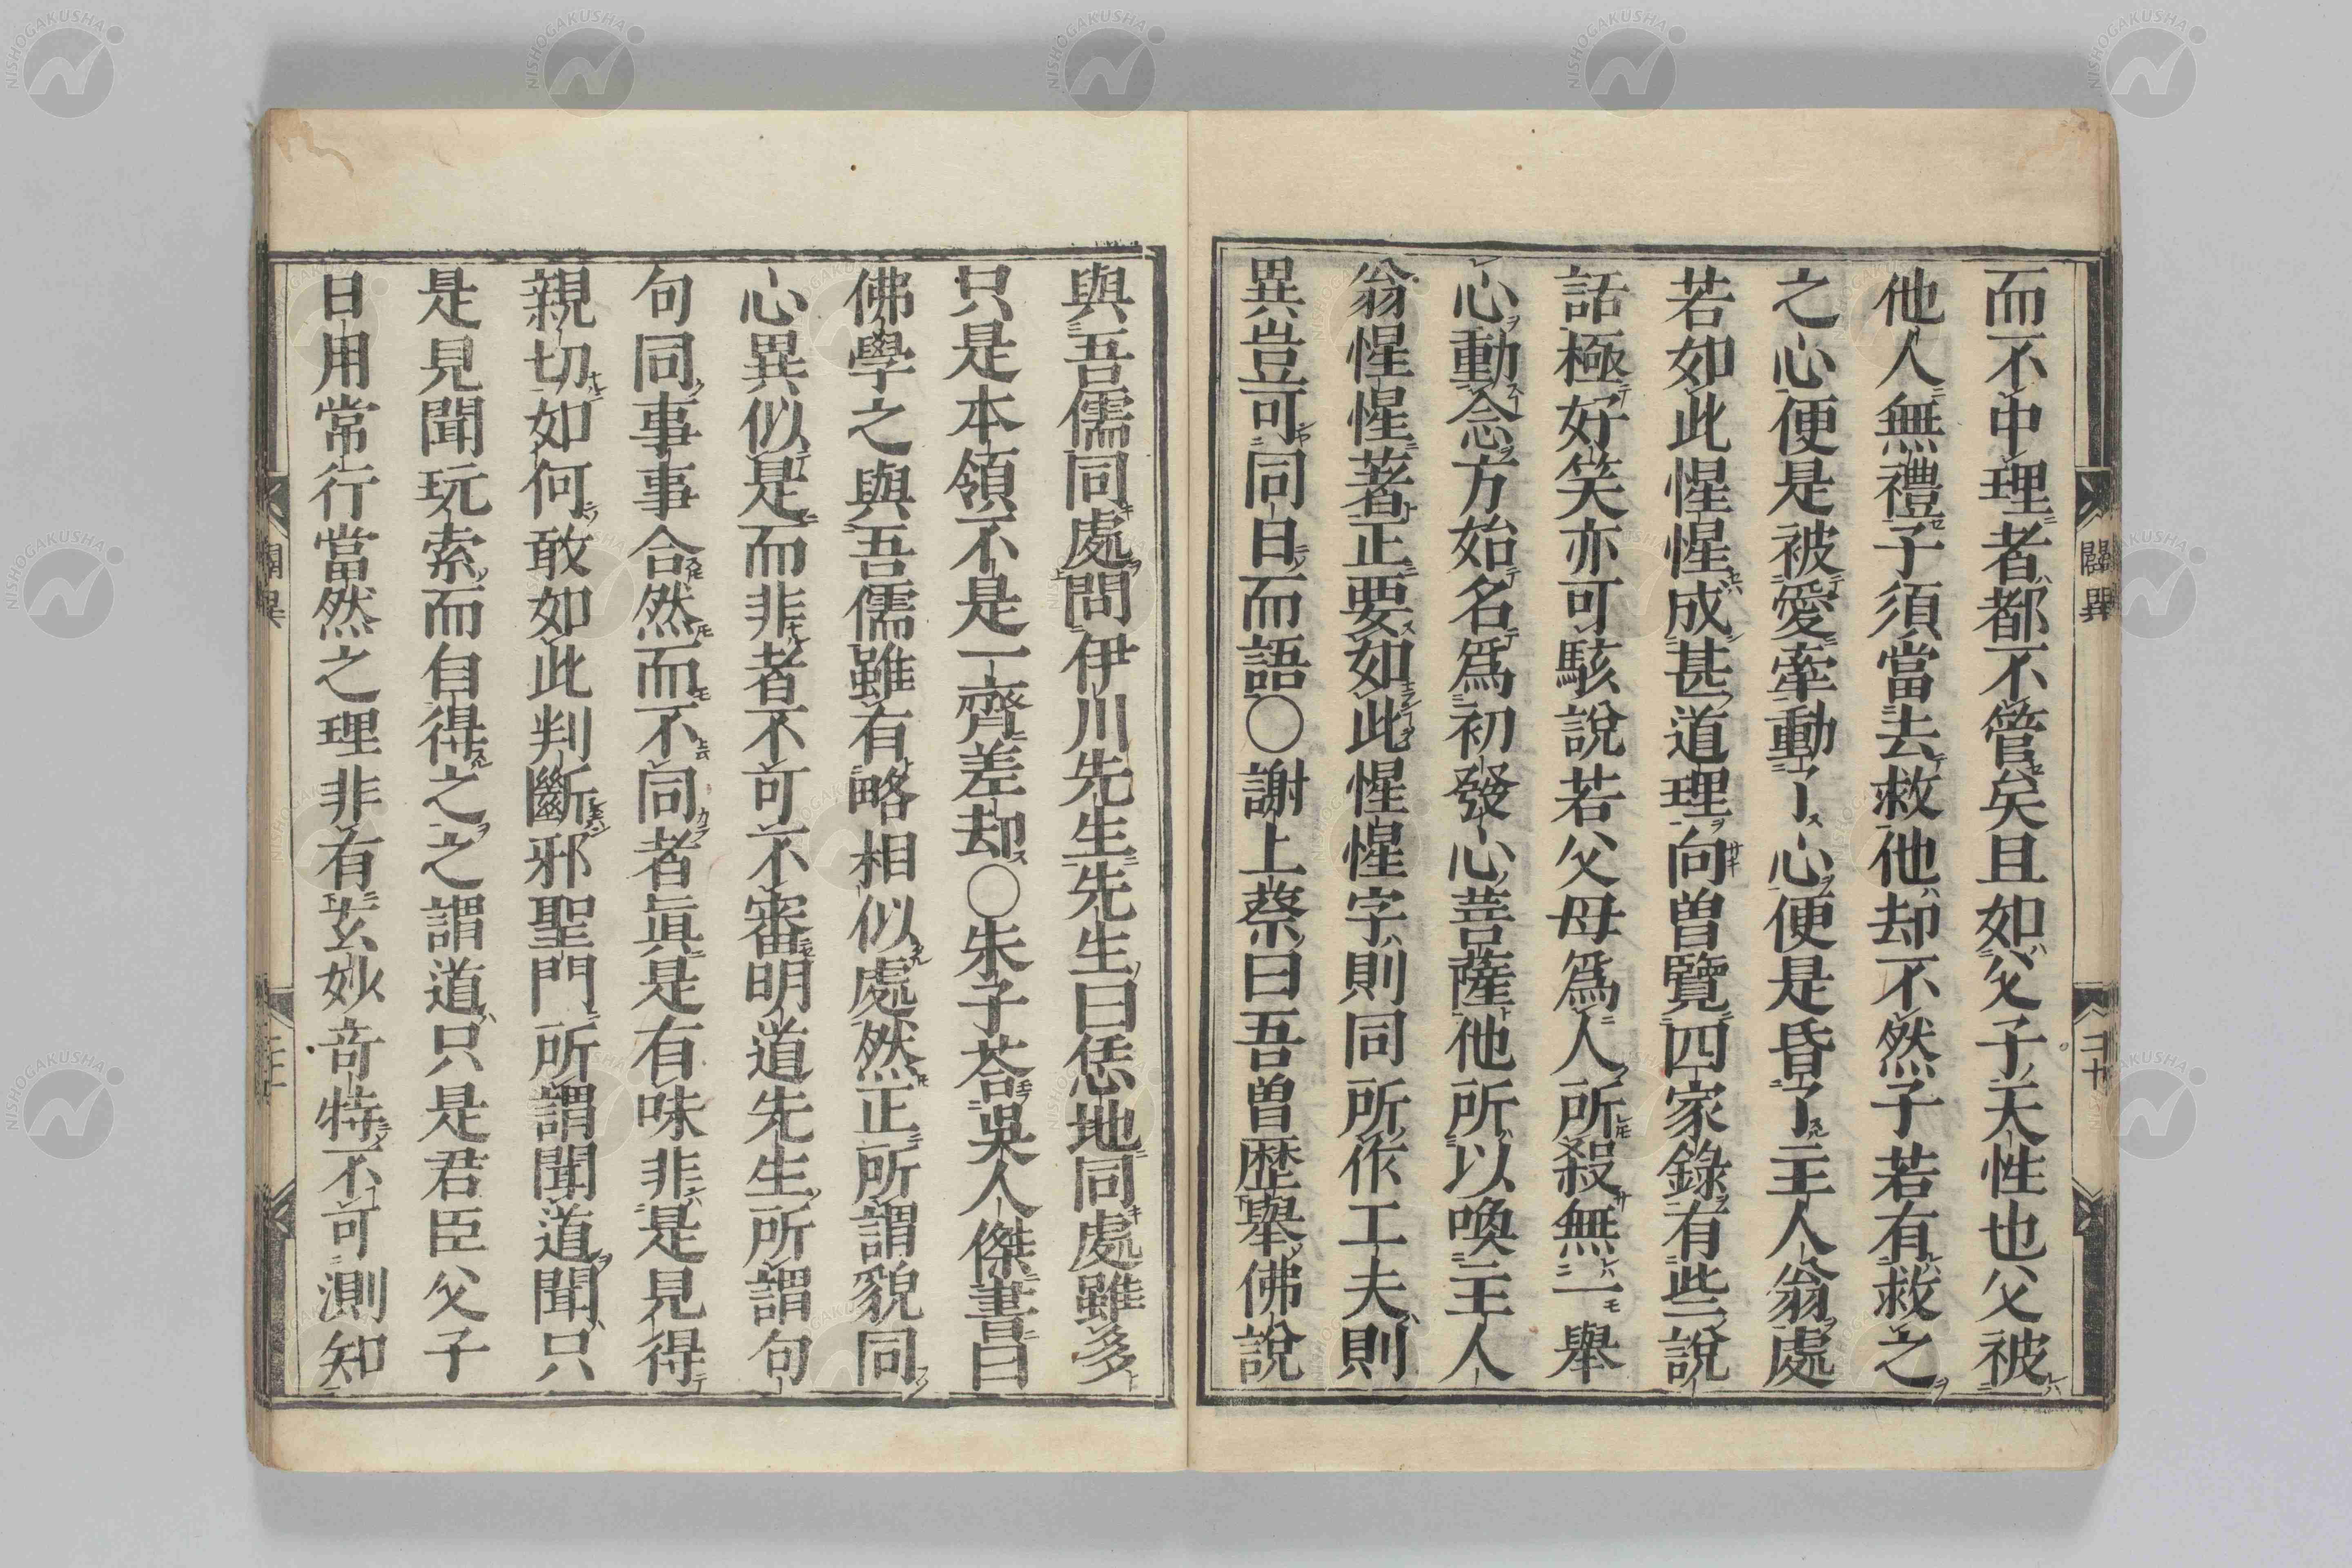 而不中理者都不管矣且如父子天性也父被
他人無禮子須當去救他却不然子若有救之
之心便是被愛牽動了心便是昏了主人翁處
若如此惺惺成甚道理向曽覽四家錄有些說
話極好笑亦可駭說若父母爲人所殺無一舉
心動念方始名爲初發心菩薩他所以喚主人
翁惺惺著正要如此惺惺字則同所作工夫則
異豈可同日而語〇謝上蔡曰吾曽歷舉佛說
闢異
三十
與吾儒同處問伊川先生先生曰恁地同處雖多
只是本領不是一齊差却〇朱子荅吳人傑書曰
佛學之與吾儒雖有略相似處然正所謂貌同
心異似是而非者不可不審明道先生所謂句
句同事事合然而不同者眞是有味非是見得
親切如何敢如此判斷邪聖門所謂聞道聞只
是見聞玩索而自得之之謂道只是君臣父子
日用常行當然之理非有玄妙奇特不可測知